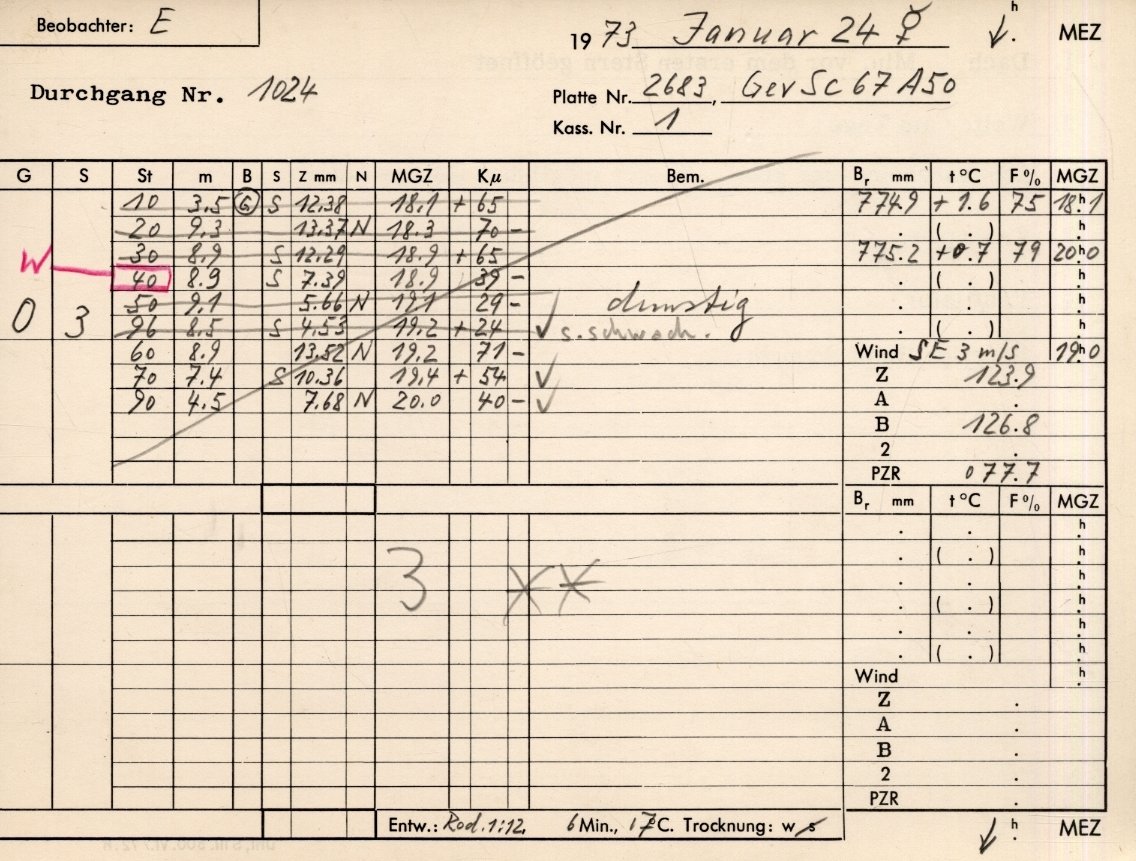 Beobachter: E
1973 Januar 24 ☿ h. MEZ
Durchgang Nr. 1024
Platte Nr. 2683, GevSc67A50
Kass. Nr. 1
G S St m B S Z mm N MGZ Kμ Bem. Br mm t °C F % MGZ
10 3.5 G S 12.38 18.1 + 65 774.9 + 1.6 75 18h.1
20 9.3 13.37 N 18.3 70 - . ( . ) h.
W 30 8.9 S 12.29 18.9 + 65 775.2 +0.7 79 20h.0
40 8.9 S 7.39 18.9 39 - . ( . ) h.
50 9.1 5.66 N 19.1 29 - dunstig . . h.
0 3 96 8.5 S 4.53 19.2 + 24 ✓ s. schwach. . ( . ) h.
60 8.9 13.52 N 19.2 71 - Wind SE 3 m/s 19h.0
70 7.4 S 10.36 19.4 + 54 ✓ Z 123.9
90 4.5 7.68 N 20.0 40 - ✓ A .
B 126.8
2 .
PZR 077.7
Br mm t °C F % MGZ
. . h.
. ( . )
3 ** . . h.
. ( . ) h.
. . h.
. ( . )
Wind h.
Z .
A .
B .
2 .
PZR .
Entw.: Rod. 1:12, 6 Min., 17°C. Trocknung: w/s
h. MEZ